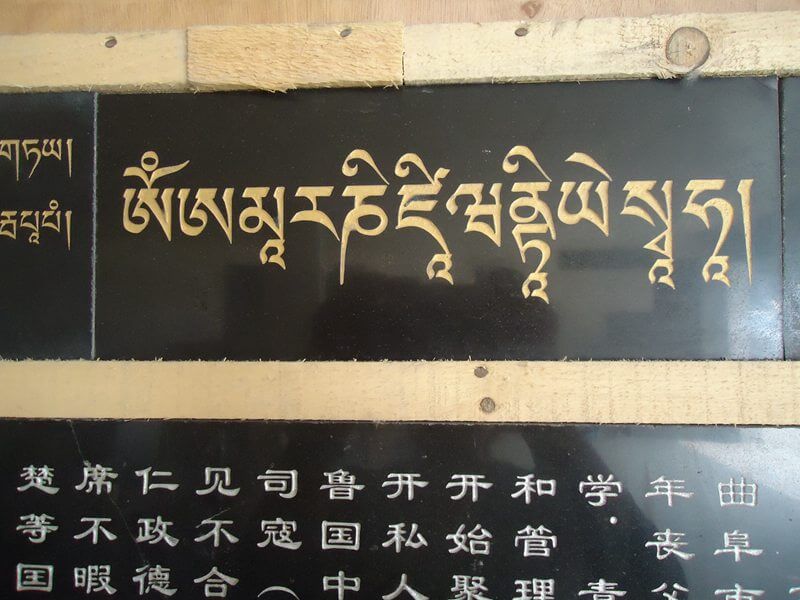 གཏཡ།
པཱཔཾ།
ཨོཾཨམཱརཎིཛཱིཝནྟཱིཡེསྭཱཧཱ།
曲阜市
年丧父
学.
和管理
开始聚
开私人
鲁国中
司寇（
见不合
仁政德
席不暇
楚等国